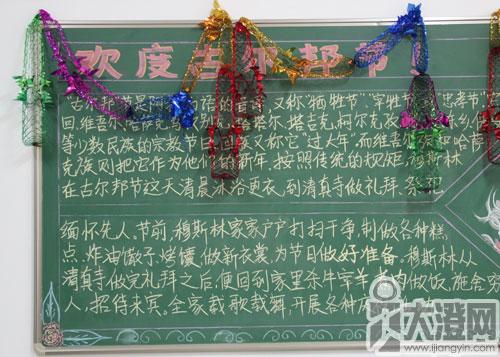 欢度古尔邦节！
"古尔邦节是阿 语的音译,又称"牺牲节""宰牲节""忠孝节"
回维吾尔哈萨克 别 塔尔.塔吉克.柯尔克孜 乡
等少数民族的宗教节日,回族又称它"过大年",而维吾 哈萨
克族则把它作为他们的新年,按照传统的规矩,穆斯林
在古尔邦节这天清晨沐浴更衣,到清真寺做礼拜、
缅怀先人。节前,穆斯林家家户户打扫干净,制做各种糕
点、炸油馓子、烧馕、做新衣裳,为节日做好准备。穆斯林从
清真寺做完礼拜之后,便回到家里杀牛宰羊 肉做饭,施舍穷
人,招待来宾。全家载歌载舞,开展各种
大澄网
www.ijiangyin.com